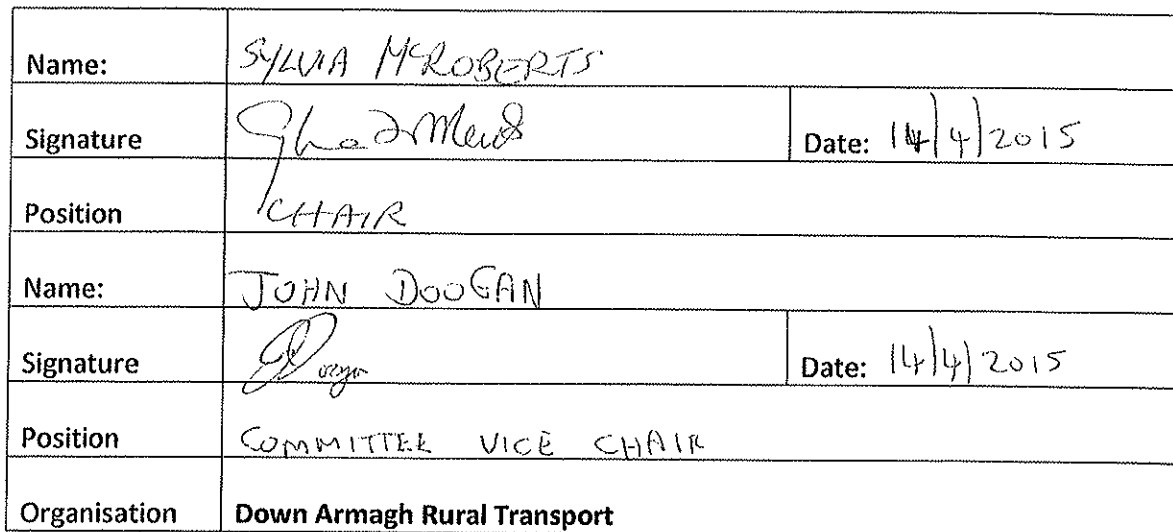 Name: SYLVIA McROBERTS
Signature
Date: 14/4/2015
Position CHAIR
Name: JOHN DOOGAN
Signature
Date: 14/4/2015
Position COMMITTEE VICE CHAIR
Organisation Down Armagh Rural Transport